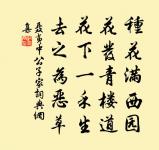 種花滿西園
花發青樓道
花下一禾生
去之為惡草
聶夷中公子家詞典網